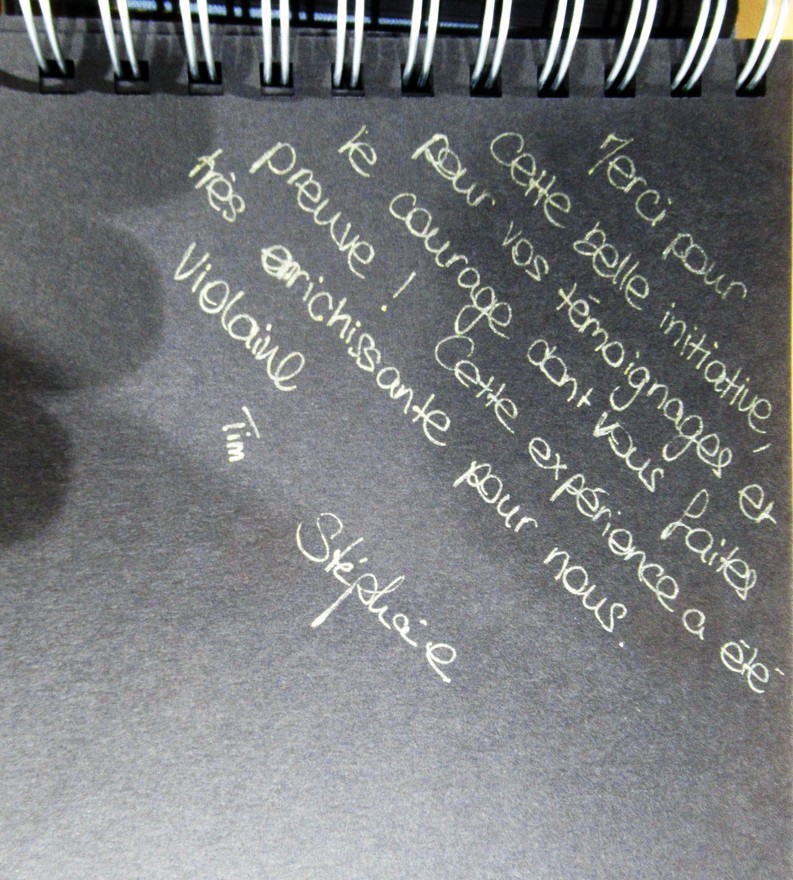 Merci pour
cette belle initiative,
pour vos témoignages et
le courage dont vous faites
preuve ! Cette expérience a été
très enrichissante pour nous.
Violaine
Tim
Stéphanie